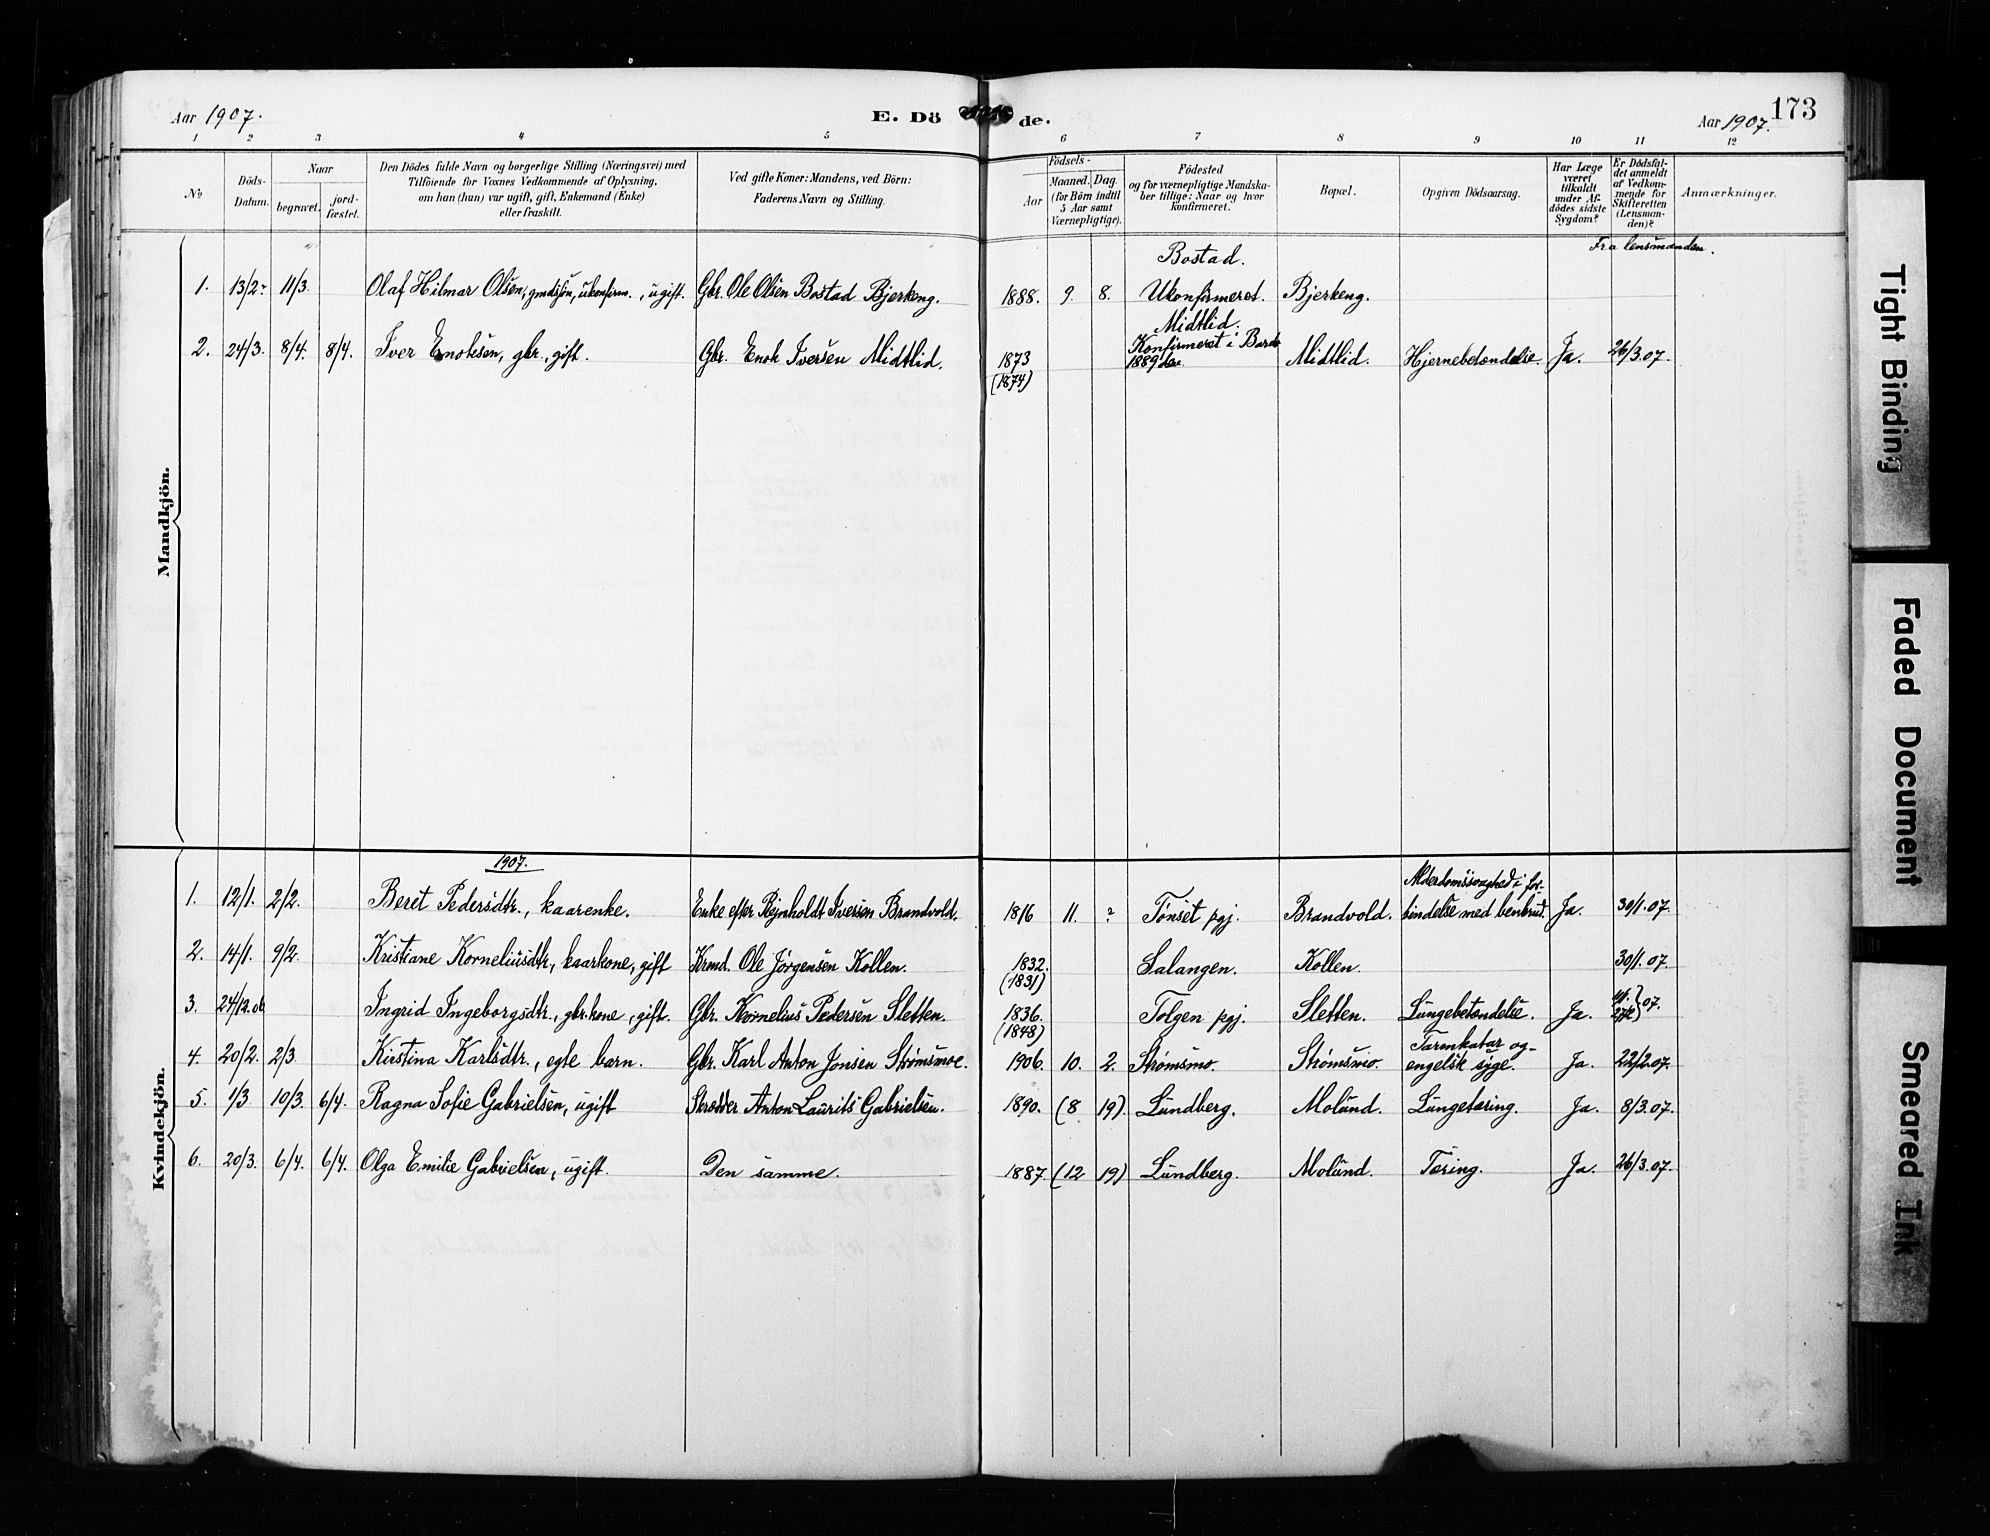 Aar 1907.
E. Dö de.
Aar 1907.
173
1 2 3 4 5 6 7 8 9 10 11 12
№
Döds-
Datum.
Naar
begravet.
jord-
fæstet.
Den Dödes fulde Navn og borgerlige Stilling (Næringsvei) med
Tilföiende for Voxnes Vedkommende af Oplysning,
om han (hun) var ugift, gift, Enkemand (Enke)
eller fraskilt.
Ved gifte Koner: Mandens, ved Börn:
Faderens Navn og Stilling.
Födsels-
Aar
Maaned. Dag.
(for Börn indtil
5 Aar samt
Værnepligtige).
Födested
og for værnepligtige Mandska-
ber tillige: Naar og hvor
konfirmeret.
Bopæl.
Opgiven Dödsaarsag.
Har Læge
været
tilkaldt
under Af-
dödes sidste
Sygdom?
Er Dödsfal-
det anmeldt
af Vedkom-
mende for
Skifteretten
(Lensman-
den)?
Anmærkninger.
Mandkjön.
Fra lensmanden.
Bostad.
1. 13/2. 11/3. Olaf Hilmar Olsen, gmdsøn, ukonfirm., ugift. Gbr. Ole Olsen Bostad Bjerkeng. 1888. 9. 8. Ukonfirmeret. Bjerkeng.
Midtlid.
Konfirmeret i Bardo
2. 24/3. 8/4. 8/4. Iver Enoksen, gbr., gift. Gbr. Enok Iversen Midtlid. 1873 1889 Midtlid. Hjernebetændelse. Ja. 26/3.07.
(1874)
Kvindekjön.
1907.
Alderdomssvaghed i for-
1. 12/1. 2/2. Beret Pedersdtr., kaarenke. Enke efter Rejnholdt Iversen Brandvold. 1816 11. ? Tønset pgj. Brandvold. bindelse med benbrud. Ja. 30/1.07.
2. 14/1. 9/2. Kristiane Korneliusdtr., kaarkone, gift Krmd. Ole Jørgensen Kollen. 1832. Salangen. Kollen. 30/1.07.
(1831)
3. 24/12.06 Ingrid Ingeborgsdtr., gbr.kone, gift. Gbr. Kornelius Pedersen Sletten. 1836. Tolgen pgj. Sletten. Lungebetændelse. Ja. 07.
(1848)
Tarmkatar og
4. 20/2. 2/3 Kirstina Karlsdtr., egte barn. Gbr. Karl Anton Jonsen Strømsmoe. 1906. 10. 2. Strømsmo. Strømsmo. engelsk syge. Ja. 22/2.07.
5. 1/3. 10/3. 6/4. Ragna Sofie Gabrielsen, ugift Skrædder Anton Laurits Gabrielsen. 1890. (8. 19) Lundberg. Molund. Lungetæring. Ja. 8/3.07.
6. 20/3. 6/4. 6/4. Olga Emilie Gabrielsen, ugift. Den samme. 1887 (12 19) Lundberg. Molund. Tæring. Ja. 26/3.07.
Tight Binding
Faded Document
Smeared Ink